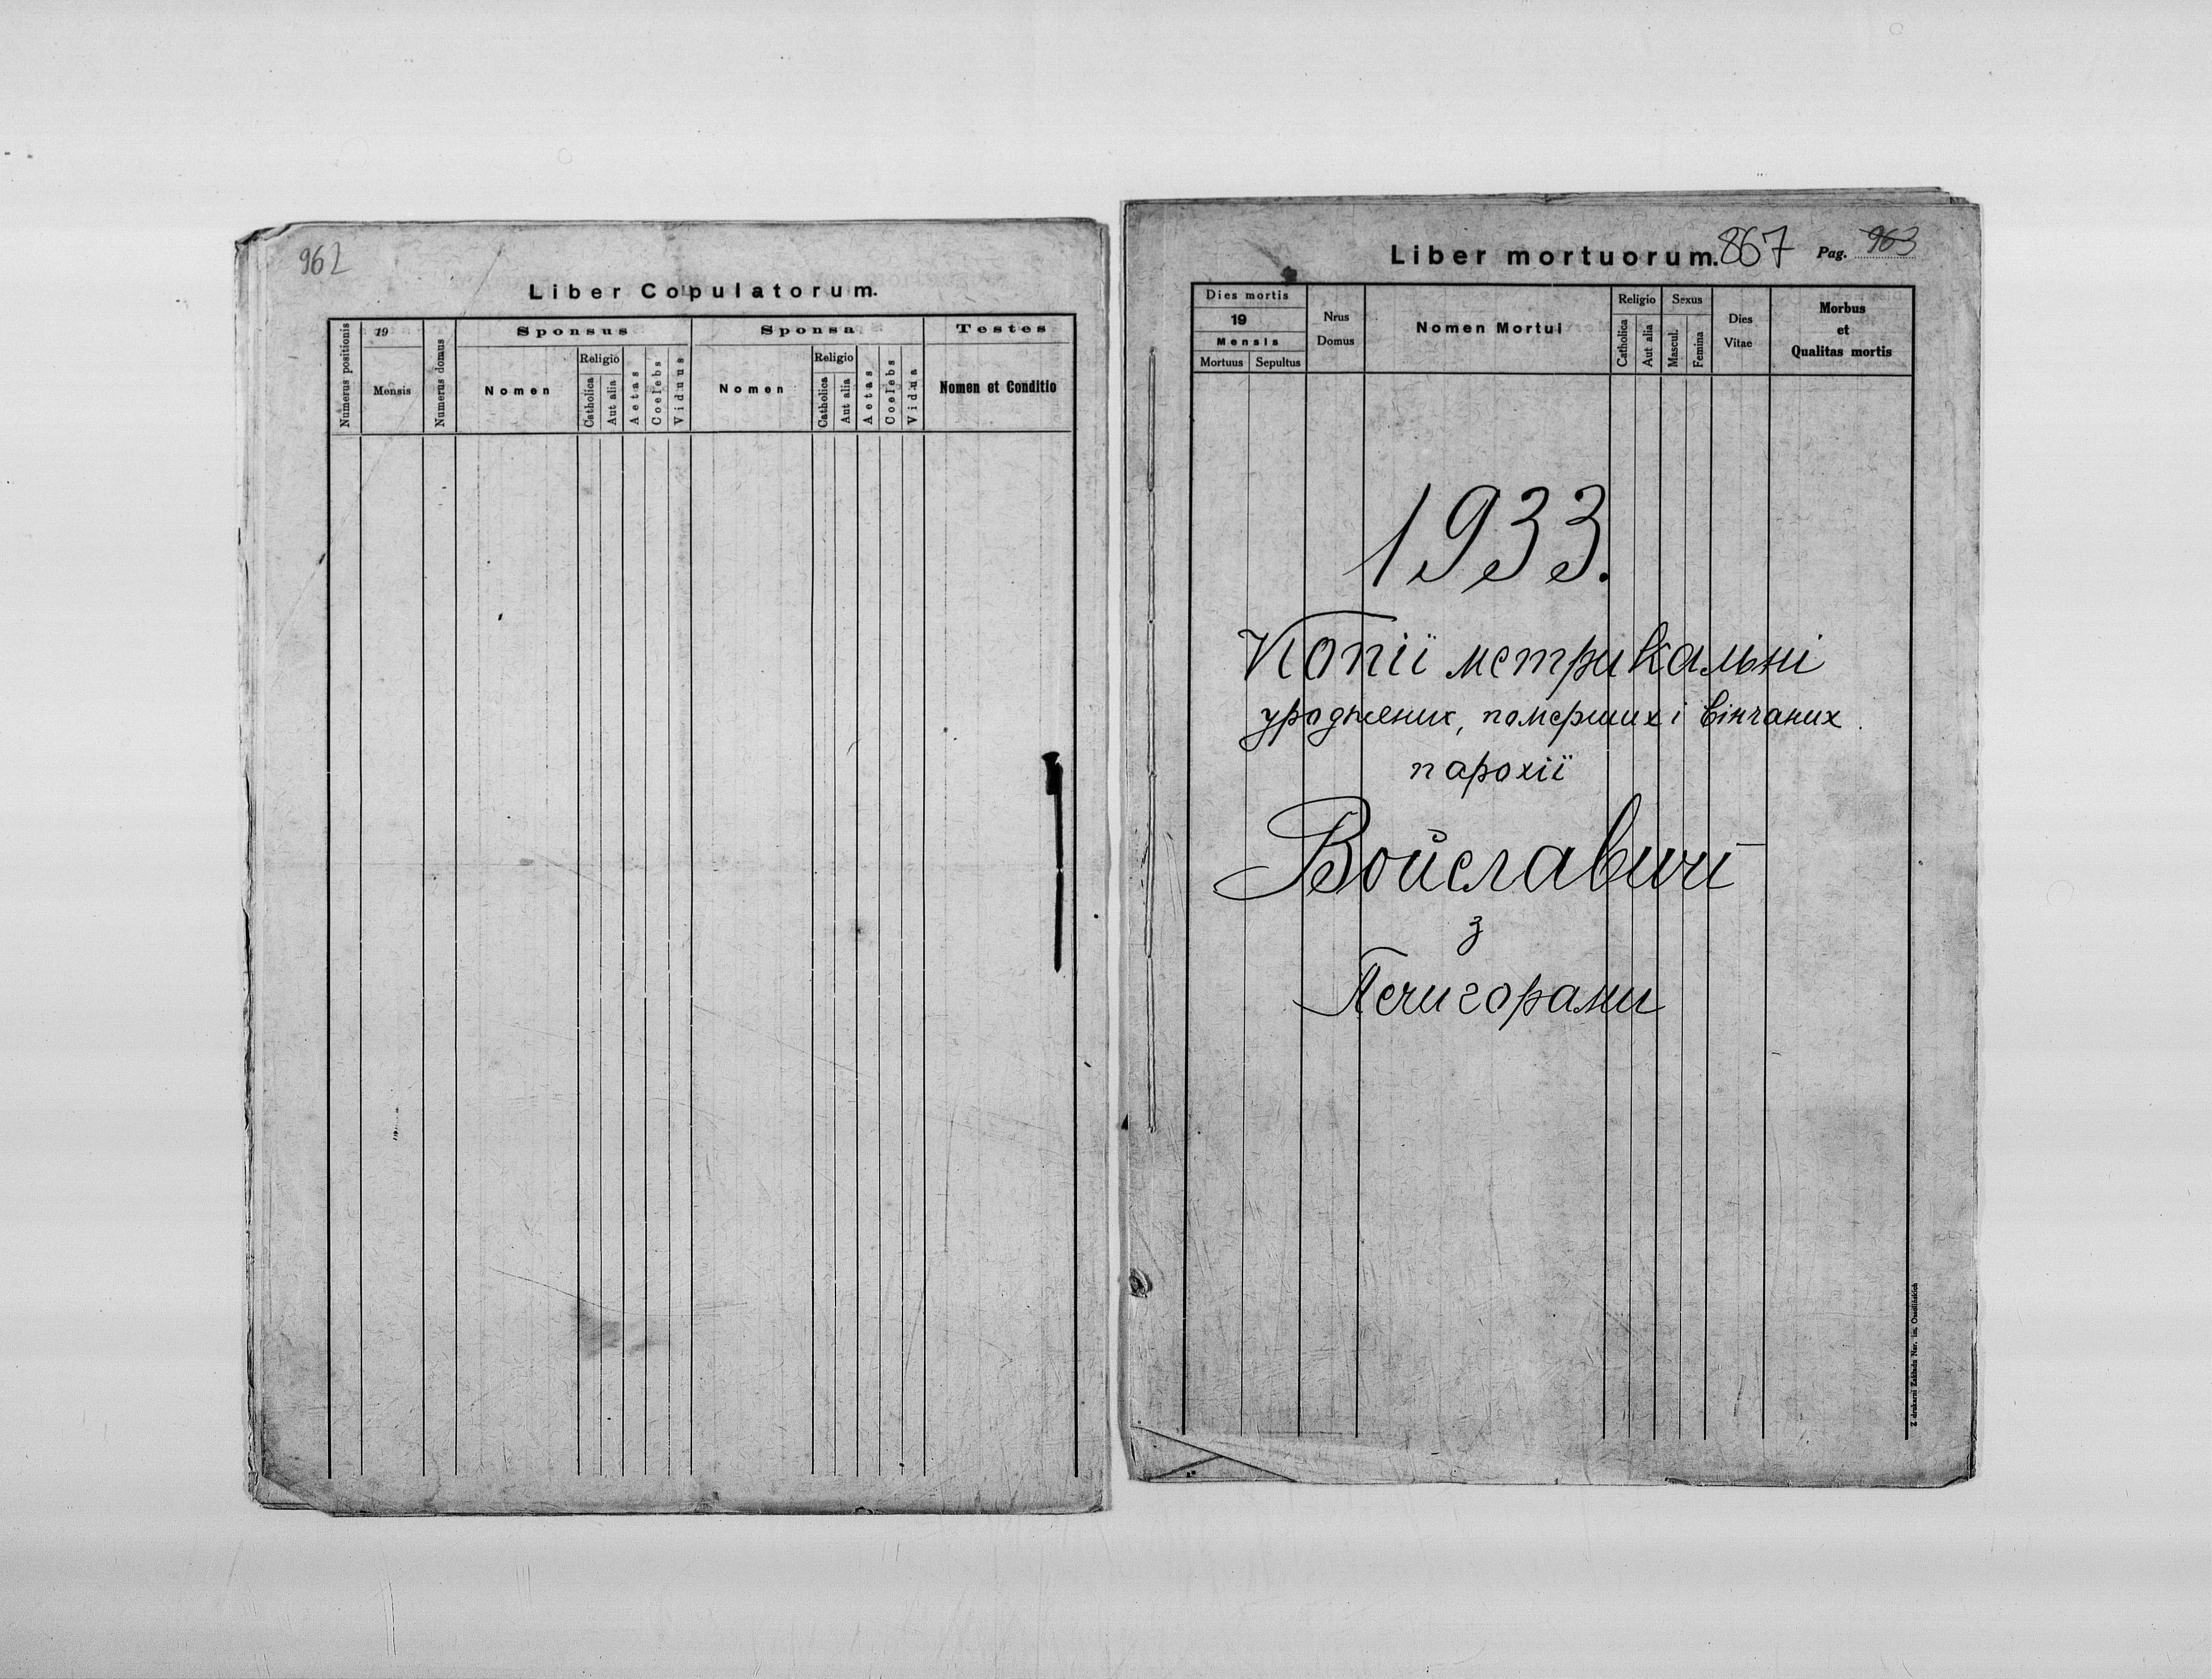 962
Liber Copulatorum.
Numerus positionis
19
Mensis
Numerus domus
Sponsus
Nomen
Religio
Catholica
Aut alia
Aetas
Coelebs
Viduus
Sponsa
Nomen
Religio
Catholica
Aut alia
Aetas
Coelebs
Vidua
Testes
Nomen et Conditio
Liber mortuorum. 867 Pag. 963
Dies mortis
19
Mensis
Mortuus Sepultus
Nrus
Domus
Nomen Mortui
Religio
Catholica
Aut alia
Sexus
Mascul.
Femina
Dies
Vitae
Morbus
et
Qualitas mortis
1933.
Копії метрикальні
уроджених, померших і вінчаних
парохії
Войславичі
з
Печигорами
Z drukarni Zakładu Nar. im. Ossolińskich